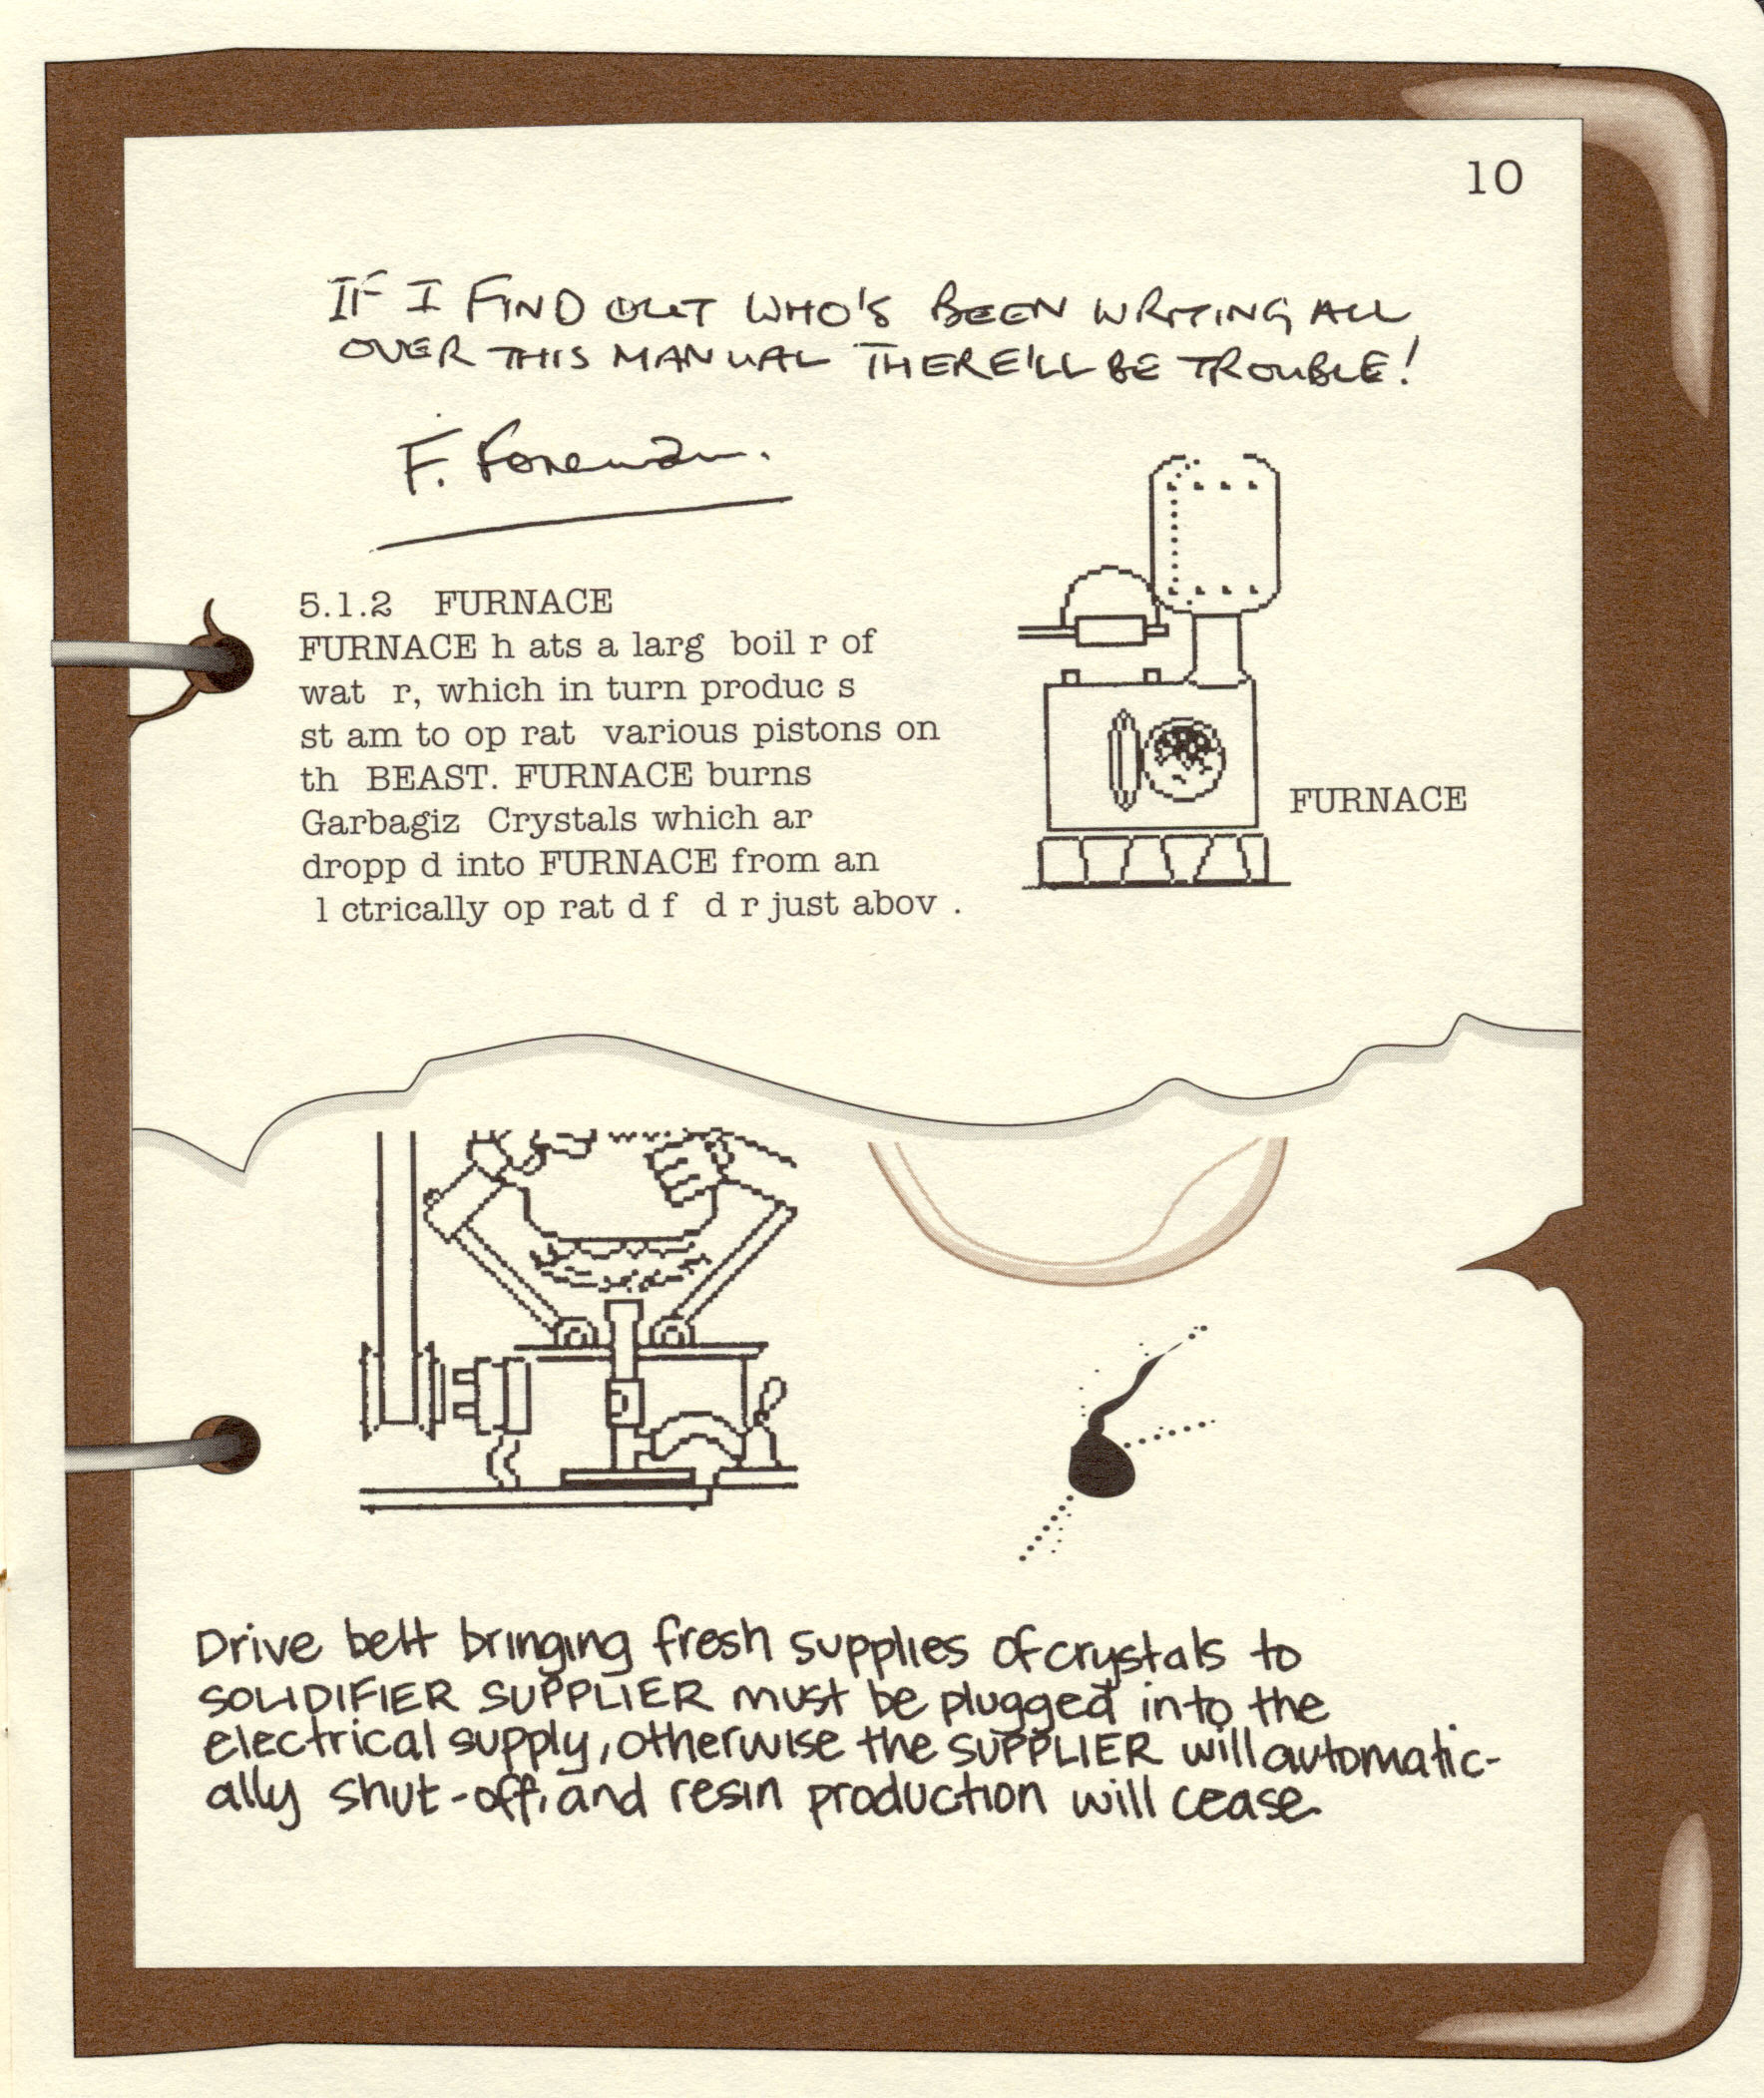 10
IF I FIND OUT WHO'S BEEN WRITING ALL
OVER THIS MANUAL THERE'LL BE TROUBLE!
F. Foreman.
5.1.2 FURNACE
FURNACE h ats a larg  boil r of
wat  r, which in turn produc s
st am to op rat  various pistons on
th  BEAST. FURNACE burns
Garbagiz  Crystals which ar
dropp d into FURNACE from an
 l ctrically op rat d f  d r just abov .
FURNACE
Drive belt bringing fresh supplies of crystals to
SOLIDIFIER SUPPLIER must be plugged into the
electrical supply, otherwise the SUPPLIER will automatic-
ally shut-off, and resin production will cease.